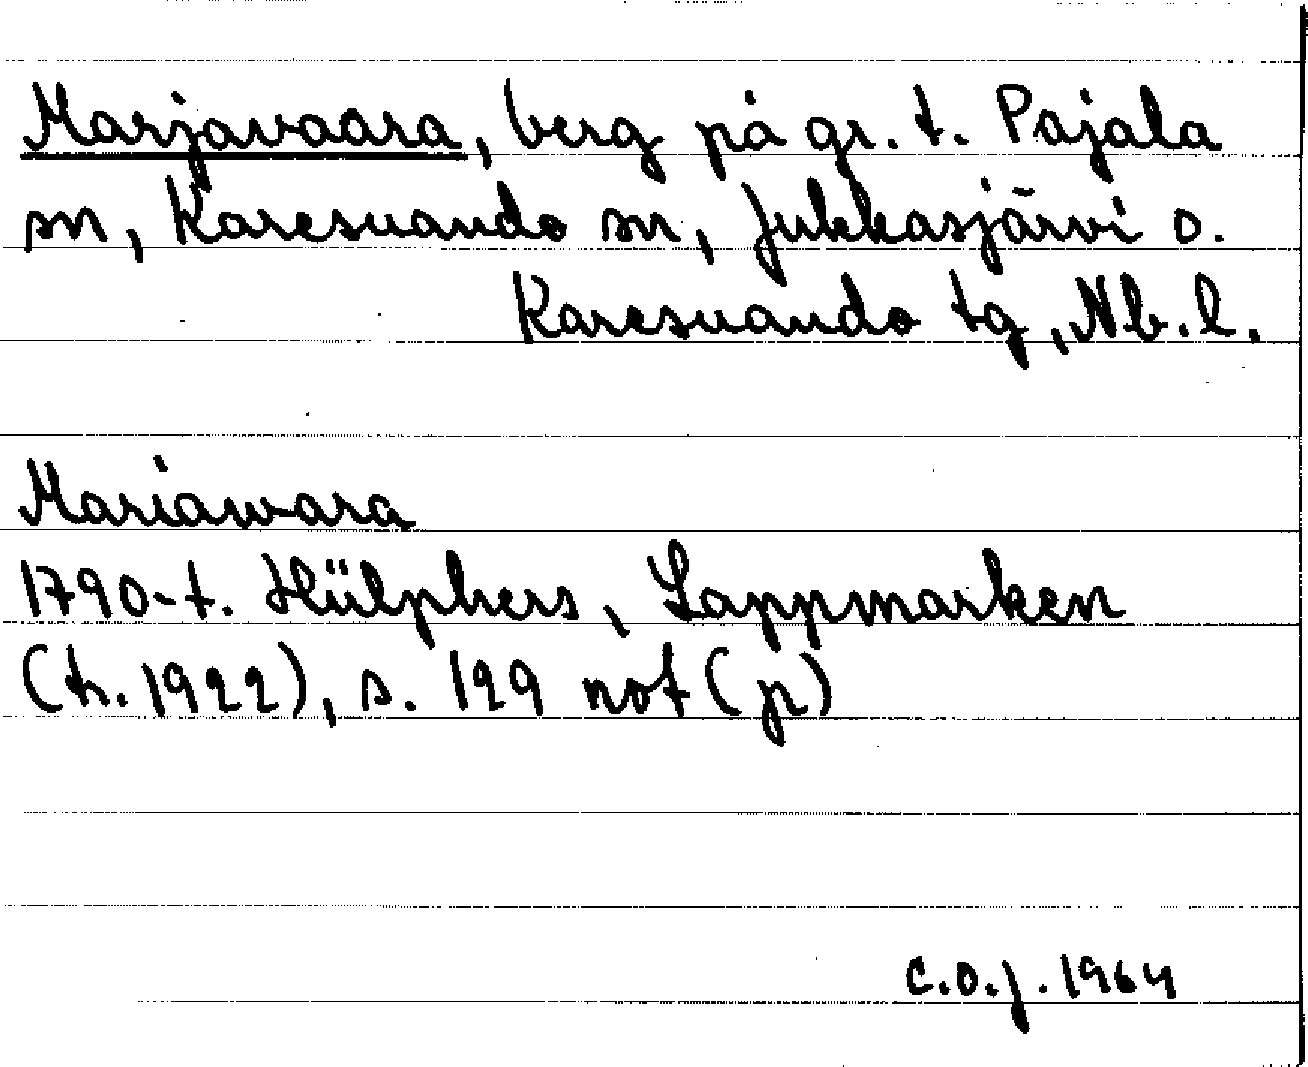 Marjavaara, berg på gr. t. Pajala
sn, Karesuando sn, Jukkasjärvi o.
Karesuando tg, Nb. l.
Mariawara
1790-t. Hülphers, Lappmarken
(tr. 1922), s. 129 not (p)
C.O.J. 1964